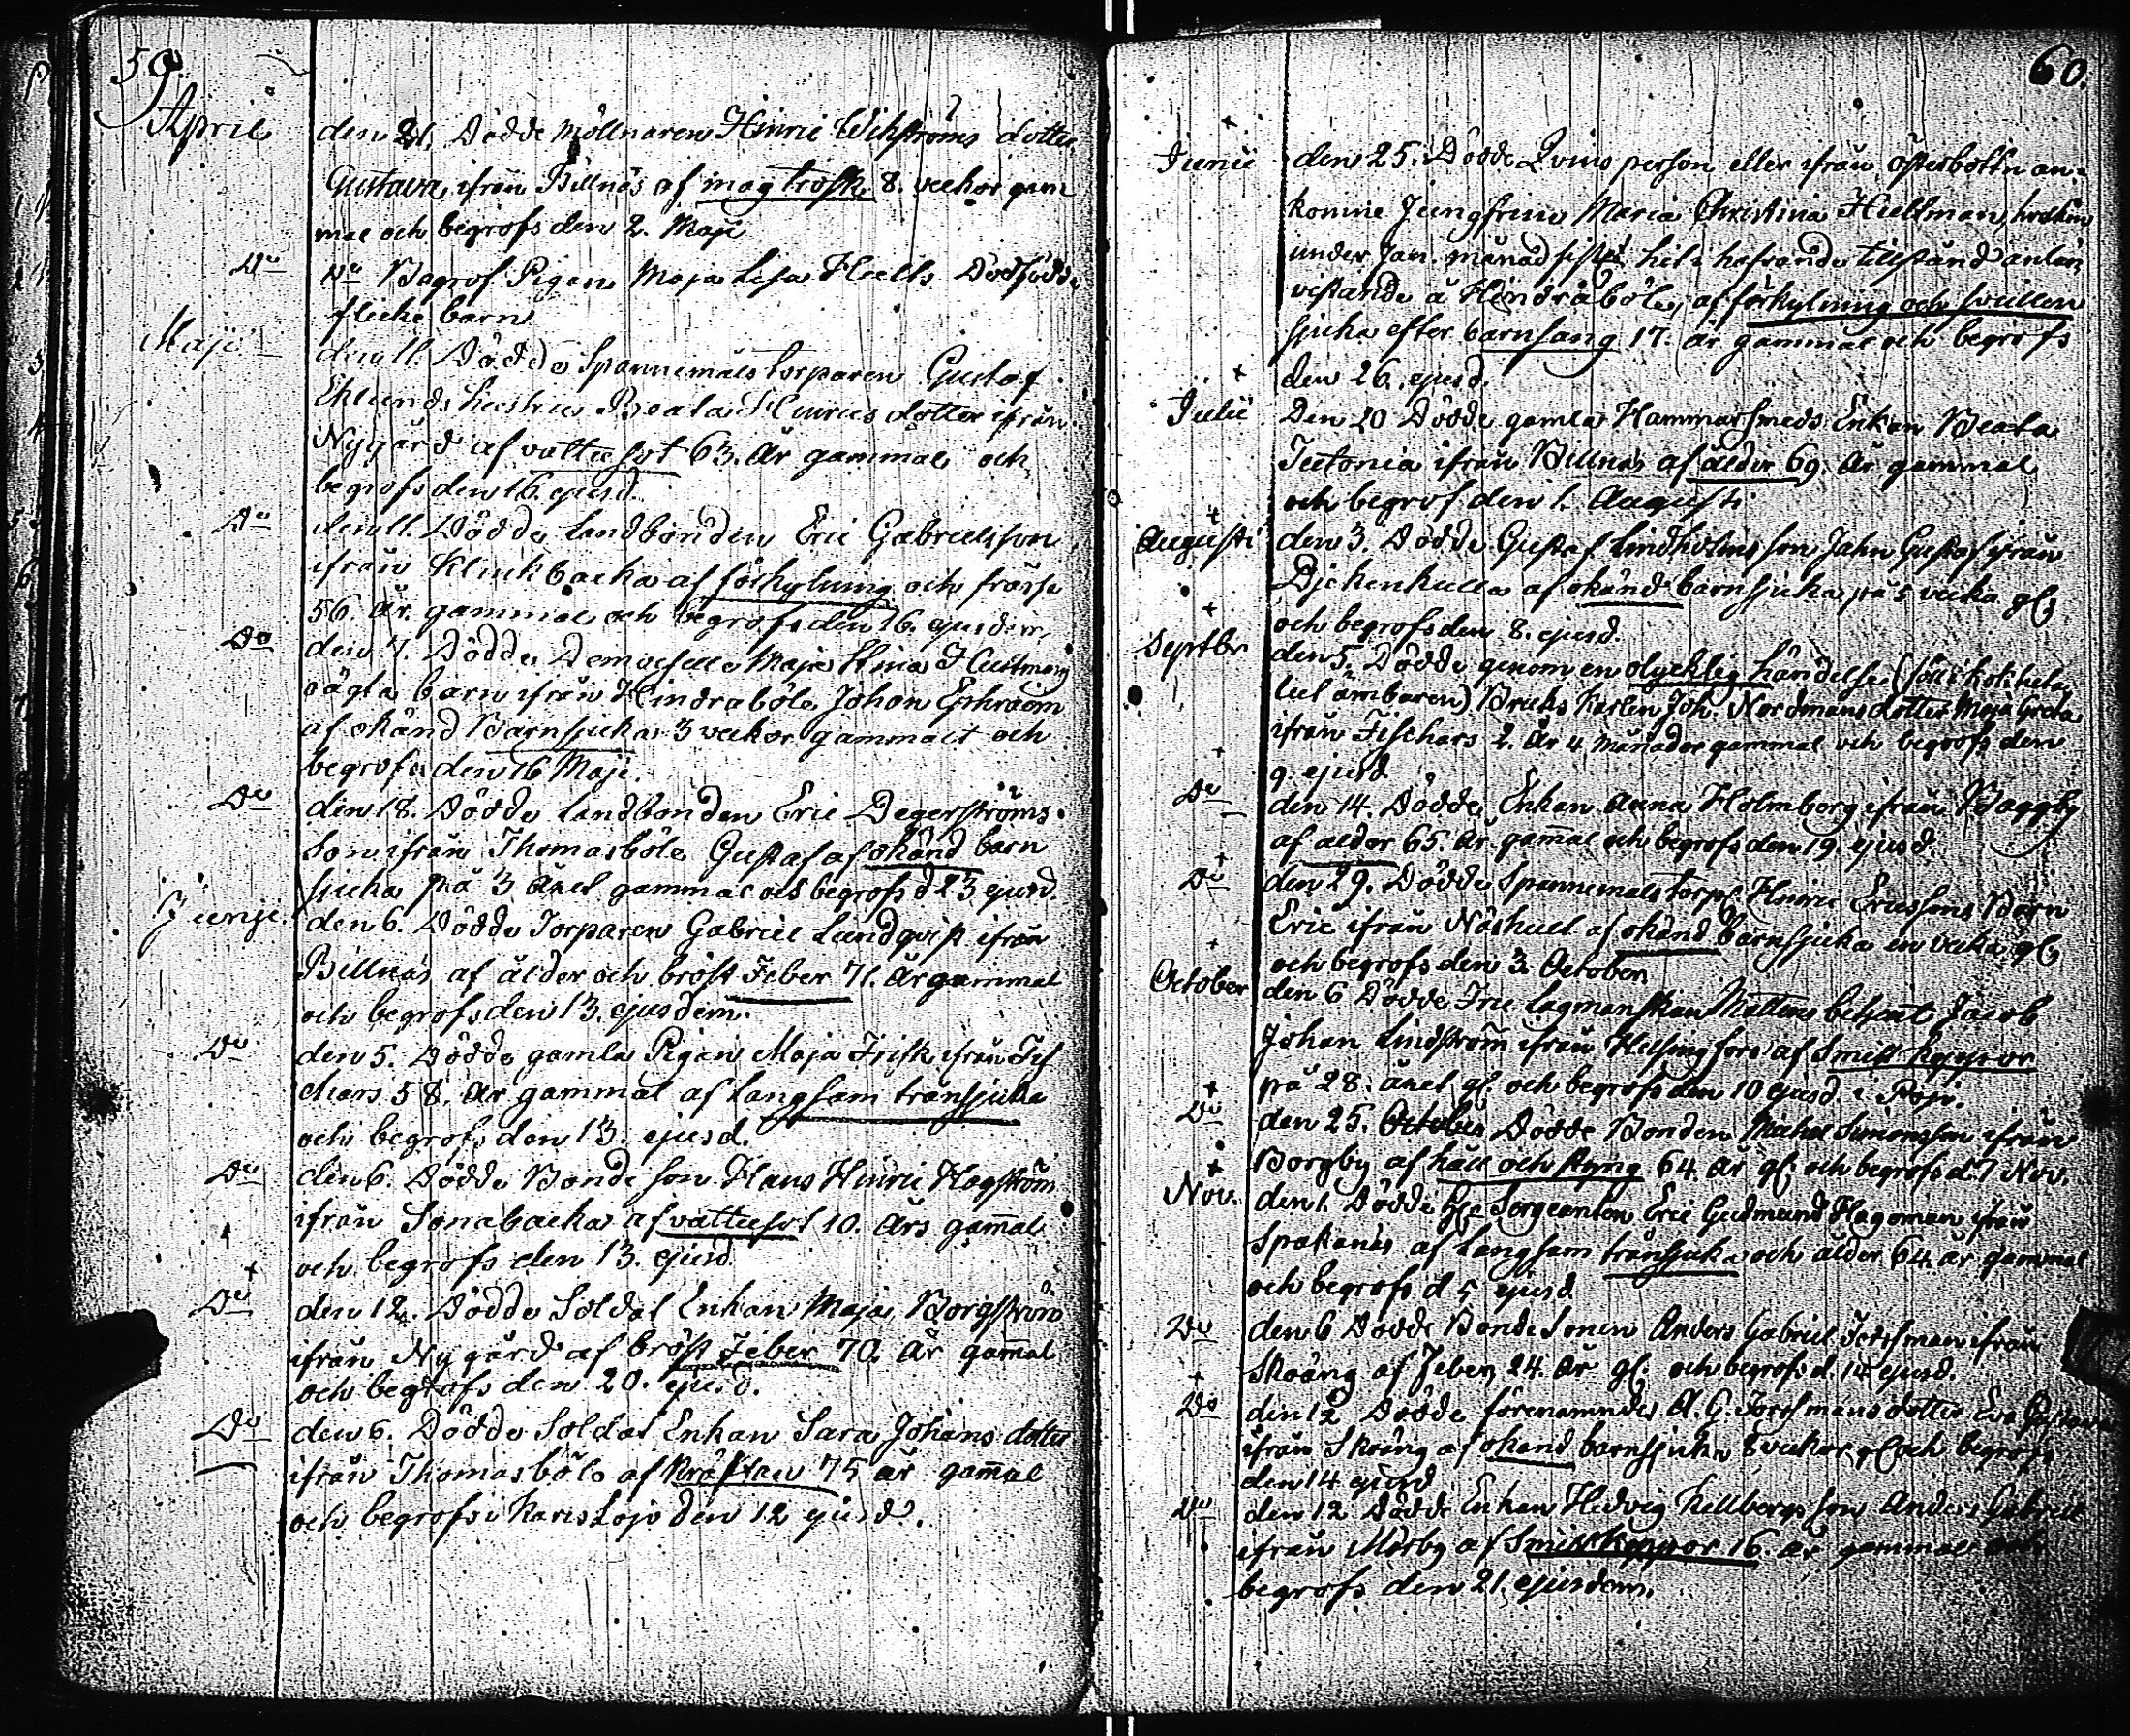 59.
April den 21. Dödde Möllnaren Hinric Wikströms dotter
Gustava ifrån Billnäs af mag trosk 8. veckor gam
mal och begrofs den 2. Maji
Do Do Begrof Pigan Maja Lisa Hells Dödfödde
flicke barn
Maji den 11. Dödde Spannemåls torparen Gustaf
Eklunds hustru Beata Hinrics dotter ifrån
Nygård af vattusot 63. År gammal och
begrofs den 16. ejusd.
Do den 11. Dödde Landbonden Eric Gabrielsson
ifrån Klinkbacka af förkylning och frossa
56. År. gammal och begrofs den 16. ejusdem
Do den 7. Dödde Demoiselle Maja Stina Hultmans
oägta barn ifrån Hindraböle Johan Ephraim
af okänd Barnsjuka 3 veckor gammalt och
begrofs den 16 Maji.
Do den 18. Dödde Landbonden Eric Degerströms
Son ifrån Thomasböle Gustaf af okänd barn
sjuka på 3 året gammal och begrofs d 23 ejusd.
Junji den 6. Dödde Torparen Gabriel Lundqvist ifrån
Billnäs af ålder och bröst Feber 71. År gammal
och begrofs den 13. ejusdem.
Do den 5. Dödde gamla Pigan Maja Frisk ifrån Fis
chars 58. År gammal af Langsam transjuka
och begrofs den 13. ejusd.
Do den 6. Dödde Bonde son Hans Hinric Hogström
ifrån Sonabacka af vattusot 10. Års gam̄al
och begrofs den 13. ejusd.
Do den 12. Dödde Soldat Enkan Maja Borgström
ifrån Nygård af bröst Feber 70. År gam̄al
och begrofs den 20. ejusd.
Do den 6. Dödde Soldat Enkan Sara Johans dotter
ifrån Thomasböle af Kräftan 75 år gam̄al
och begrofs i Karislojo den 12 ejusd.
60.
Junii den 25. Dödde Qvins person eller ifrån österbottn an-
komne Jungfrun Maria Christina Hultman, hvilken
under Jan. månad sistl. hit i hafvande tillstånd anlän,
vistande å Hindraböle, af förkylning och svullen
sjuka efter barnsäng 17. år gammal och begrofs
den 26. ejusd.
Julii Den 20 Dödde gamla Hammarsmeds Enkan Beata
Tectonia ifrån Billnäs af ålder 69. År gammal
och begrof den 1. Augusti
Augusti den 3. Dödde Gustaf Lindholms son Jahn Gustaf ifrån
Djekenkulla af okänd barnsjuka på 5 veckan gl.
och begrofs den 8. ejusd.
Septbr den 5. Dödde genom en olycklig händelse (föll i kok heta
lut ämbaren) Bruks Karlen Joh. Nordmans dotter Maja Greta
ifrån Fischars 2. År 4 månader gammal och begrofs den
9. ejusd
Do den 14. Dödde Enkan Anna Holmberg ifrån Baggby
af ålder 65. År. gam̄al och begrofs den 19. ejusd.
Do den 29. Dödde Spannemåls torp. Hinric Ericssons Barn
Eric ifrån Näshult af okänd barnsjuka en vecka gl.
och begrofs den 3. October
October den 6 Dödde Fru Lagmanskan betjent Jacob
Johan Lindström ifrån Helsingfors af Smitt Koppor
på 28. året gl. och begrofs den 10 ejusd. i Pojo.
Do den 25. October Dödde Bonden Michel Simonsson ifrån
Borgby af håll och styng 64. År gl. och begrofs d. 7 Nov.
Nov. den 1. Dödde Sergeanten Eric Gudmund Hagoman ifrån
Spakanäs af Langsam transjuka och ålder 64. år gammal
och begrofs d 5 ejusd
Do den 6 Dödde Bonde Sonen Anders Gabriel Forssman ifrån
Skoäng af Feber 24. År gl. och begrofs d. 14 ejusd.
Do den 12 Dödde förenamndes A. G. Forssmans dotter Eva Gustava
ifrån Skoäng af okänd barnsjuka 8 veckor gl. och begrofs
den 14 ejusd
Do den 12 Dödde Enkan Hedvig Kullbergs son Anders Gabriel
ifrån Mörby af Smitt Koppor 16. år gammal och
begrofs den 21. ejusdem.